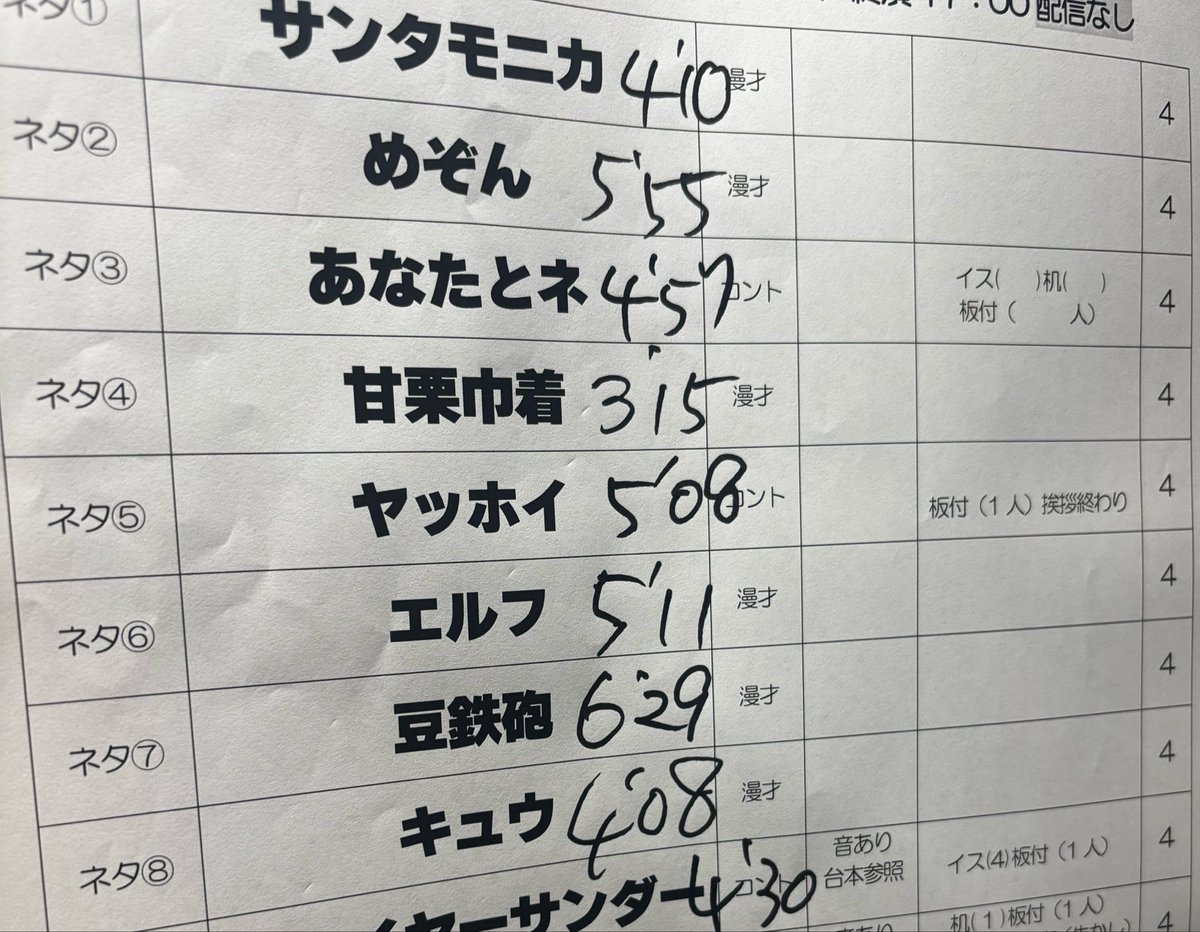 配信なし
ネタ① サンタモニカ 4'10 漫才 4
ネタ② めぞん 5'55 漫才 4
ネタ③ あなたとネ 4'57 コント イス(　)机(　) 4
板付（　人）
ネタ④ 甘栗巾着 3'15 漫才 4
ネタ⑤ ヤッホイ 5'08 コント 板付（1人）挨拶終わり 4
ネタ⑥ エルフ 5'11 漫才 4
ネタ⑦ 豆鉄砲 6'29 漫才 4
ネタ⑧ キュウ 4'08 漫才 4
イヤーサンダー 4'30 コント 音あり イス(4)板付（1人） 4
台本参照
机(1)板付（1人） 4